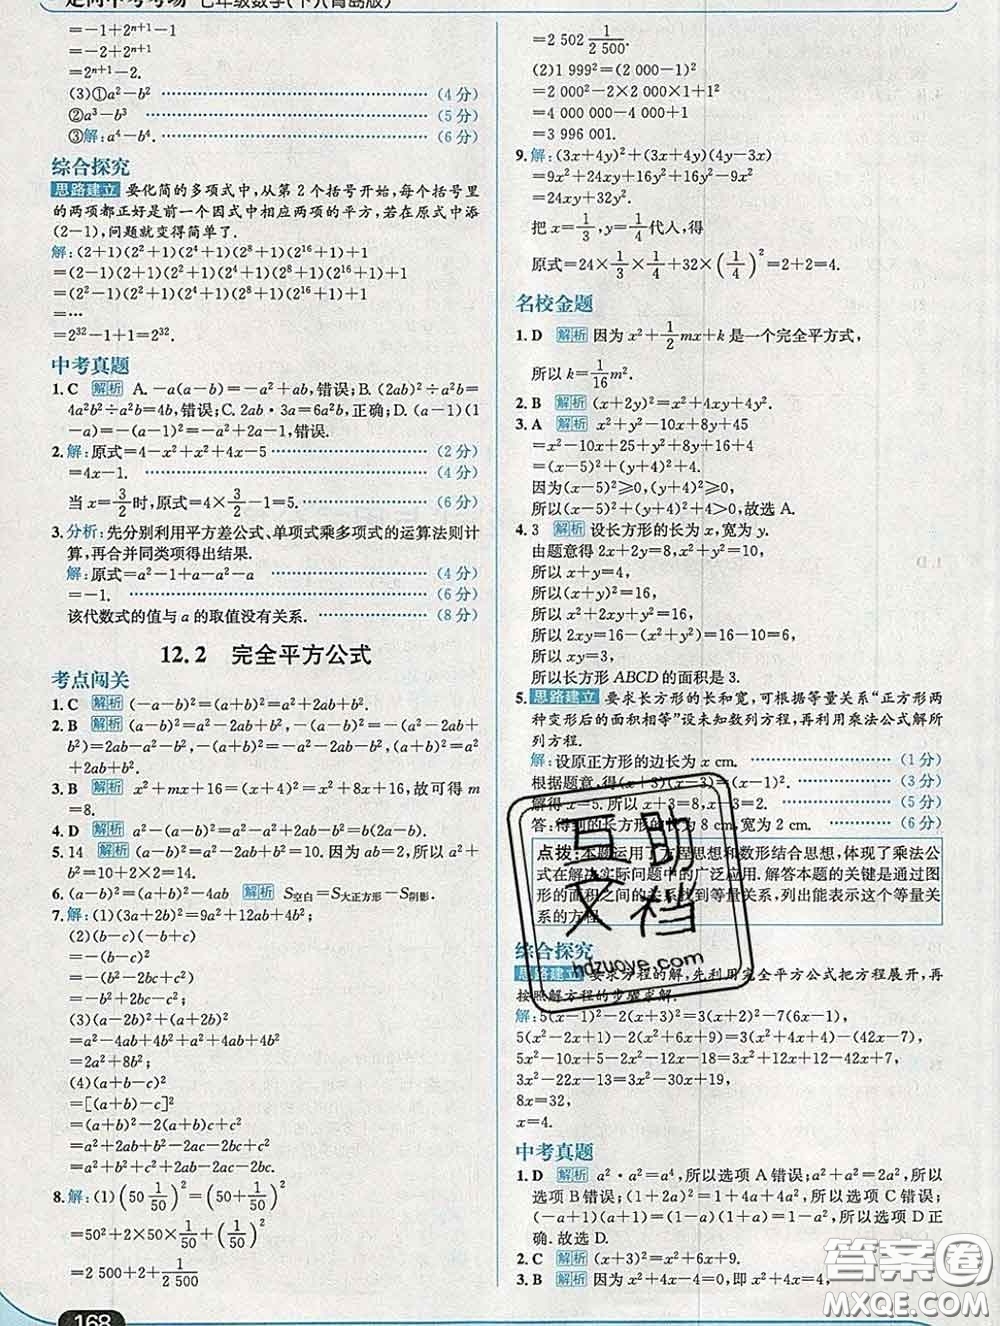 走向中考考场 七年级数学(下)(青岛版)
=-1+2ⁿ⁺¹-1
=-2+2ⁿ⁺¹
=2ⁿ⁺¹-2.
(3)①a²-b² (4分)
②a³-b³ (5分)
③解:a⁴-b⁴. (6分)
综合探究
思路建立 要化简的多项式中,从第2个括号开始,每个括号里
的两项都正好是前一个因式中相应两项的平方,若在原式中添
(2-1),问题就变得简单了.
解:(2+1)(2²+1)(2⁴+1)(2⁸+1)(2¹⁶+1)+1
=(2-1)(2+1)(2²+1)(2⁴+1)(2⁸+1)(2¹⁶+1)+1
=(2²-1)(2²+1)(2⁴+1)(2⁸+1)(2¹⁶+1)+1
=…
=2³²-1+1=2³².
中考真题
1.C 解析 A.-a(a-b)=-a²+ab,错误;B.(2ab)²÷a²b=
4a²b²÷a²b=4b,错误;C.2ab·3a=6a²b,正确;D.(a-1)(1
-a)=-(a-1)²=-a²+2a-1,错误.
2.解:原式=4-x²+x²+4x-5 (2分)
=4x-1. (4分)
当x=3/2时,原式=4×3/2-1=5. (6分)
3.分析:先分别利用平方差公式、单项式乘多项式的运算法则计
算,再合并同类项得出结果.
解:原式=a²-1+a-a²-a (4分)
=-1. (6分)
该代数式的值与a的取值没有关系. (8分)
12.2 完全平方公式
考点闯关
1.C 解析 (-a-b)²=(a+b)²=a²+2ab+b².
2.B 解析 (a-b)²=a²-2ab+b²,-(a-b)²=-(a²-2ab+
b²)=2ab-a²-b²,-(a+b)²=-a²-2ab-b²,(a+b)²=a²
+2ab+b².
3.B 解析 x²+mx+16=(x+4)²=x²+8x+16,故可得m
=8.
4.D 解析 a²-(a-b)²=a²-a²+2ab-b²=b(2a-b).
5.14 解析 (a-b)²=a²-2ab+b²=10.因为ab=2,所以a²+
b²=10+2×2=14.
6.(a-b)²=(a+b)²-4ab 解析 S空白=S大正方形-S阴影.
7.解:(1)(3a+2b)²=9a²+12ab+4b²;
(2)(b-c)(-b+c)
=-(b-c)²
=-(b²-2bc+c²)
=-b²+2bc-c²;
(3)(a-2b)²+(a+2b)²
=a²-4ab+4b²+a²+4ab+4b²
=2a²+8b²;
(4)(a+b-c)²
=[(a+b)-c]²
=(a+b)²-2(a+b)c+c²
=a²+2ab+b²-2ac-2bc+c²
=a²+b²+c²+2ab-2ac-2bc.
8.解:(1)(50 1/50)²=(50+1/50)²
=50²+2×50×1/50+(1/50)²
=2 500+2+1/2 500
168
=2 502 1/2 500.
(2)1 999²=(2 000-1)²
=2 000²-2×2 000×1+1²
=4 000 000-4 000+1
=3 996 001.
9.解:(3x+4y)²+(3x+4y)(4y-3x)
=9x²+24xy+16y²+16y²-9x²
=24xy+32y².
把x=1/3,y=1/4代人,得
原式=24×1/3×1/4+32×(1/4)²=2+2=4.
名校金题
1.D 解析 因为x²+1/2mx+k是一个完全平方式,
所以k=1/16m².
2.B 解析 (x+2y)²=x²+4xy+4y².
3.A 解析 x²+y²-10x+8y+45
=x²-10x+25+y²+8y+16+4
=(x-5)²+(y+4)²+4.
因为(x-5)²≥0,(y+4)²≥0,
所以(x-5)²+(y+4)²+4>0,故选A.
4.3 解析 设长方形的长为x,宽为y.
由题意得2x+2y=8,x²+y²=10,
所以x+y=4,
所以(x+y)²=16,
所以x²+2xy+y²=16,
所以2xy=16-(x²+y²)=16-10=6,
所以xy=3,
所以长方形ABCD的面积是3.
5.思路建立 要求长方形的长和宽,可根据等量关系“正方形两
种变形后的面积相等”设未知数列方程,再利用乘法公式解所
列方程.
解:设原正方形的边长为x cm. (1分)
根据题意,得(x+3)(x-3)=(x-1)². (3分)
解得x=5.所以x+3=8,x-3=2. (5分)
答:得到的长方形的长为8 cm,宽为2 cm. (6分)
点拨:本题运用了方程思想和数形结合思想,体现了乘法公
式在解决实际问题中的广泛应用.解答本题的关键是通过图
形的面积之间的关系找到等量关系,列出能表示这个等量关
系的方程.
综合探究
思路建立 要求方程的解,先利用完全平方公式把方程展开,再
按照解方程的步骤求解.
解:5(x-1)²-2(x+3)²=3(x+2)²-7(6x-1),
5(x²-2x+1)-2(x²+6x+9)=3(x²+4x+4)-(42x-7),
5x²-10x+5-2x²-12x-18=3x²+12x+12-42x+7,
3x²-22x-13=3x²-30x+19,
8x=32,
x=4.
中考真题
1.D 解析 a²·a²=a⁴,所以选项A错误;a²+a²=2a²,所以
选项B错误;(1+2a)²=1+4a+4a²,所以选项C错误;
(-a+1)(a+1)=(1-a)(1+a)=1-a²,所以选项D正
确.故选D.
2.C 解析 (x+3)²=x²+6x+9.
3.B 解析 因为x²-4x-1=0,即x²-4x=1,
互助文档
hdzuoye.com
答案圈
MXQE.COM